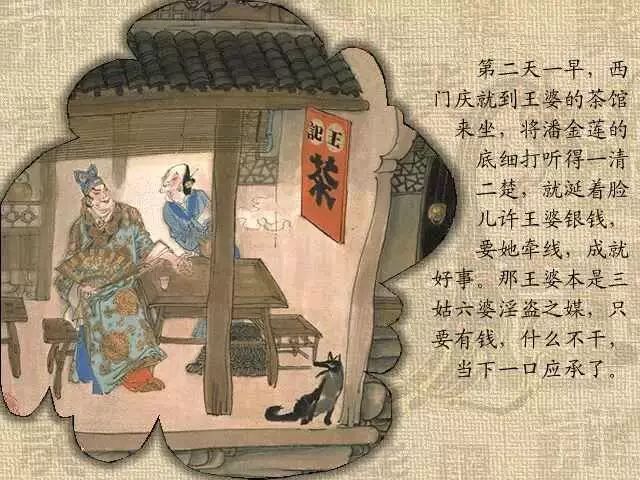 王
記
茶
第二天一早，西
门庆就到王婆的茶馆
来坐，将潘金莲的
底细打听得一清
二楚，就涎着脸
儿许王婆银钱，
要她牵线，成就
好事。那王婆本是三
姑六婆淫盗之媒，只
要有钱，什么不干，
当下一口应承了。